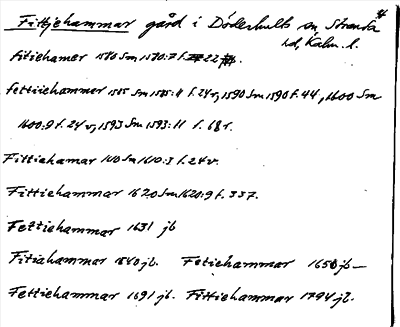 Fittjehammar gård i Döderhults sn, Stranda
hd, Kalm. l.
fitiehamer 1570 Sm 1570:7 f. 22
fettiiehammer 1585 Sm 1585:11 f. 24 r, 1590 Sm 1590 f. 44, 1600 Sm
1600:9 f. 24 v, 1593 Sm 1593:11 f. 68 r.
Fittiehamar 1610 Sm 1610:3 f. 24 v.
Fittiehammar 1620 Sm 1620:9 f. 337.
Fettiehammar 1631 jb
Fitiahammar 1640 jb. Fetiehammar 1650 jb —
Fettiehammar 1691 jb. Fittiehammar 1794 jb.